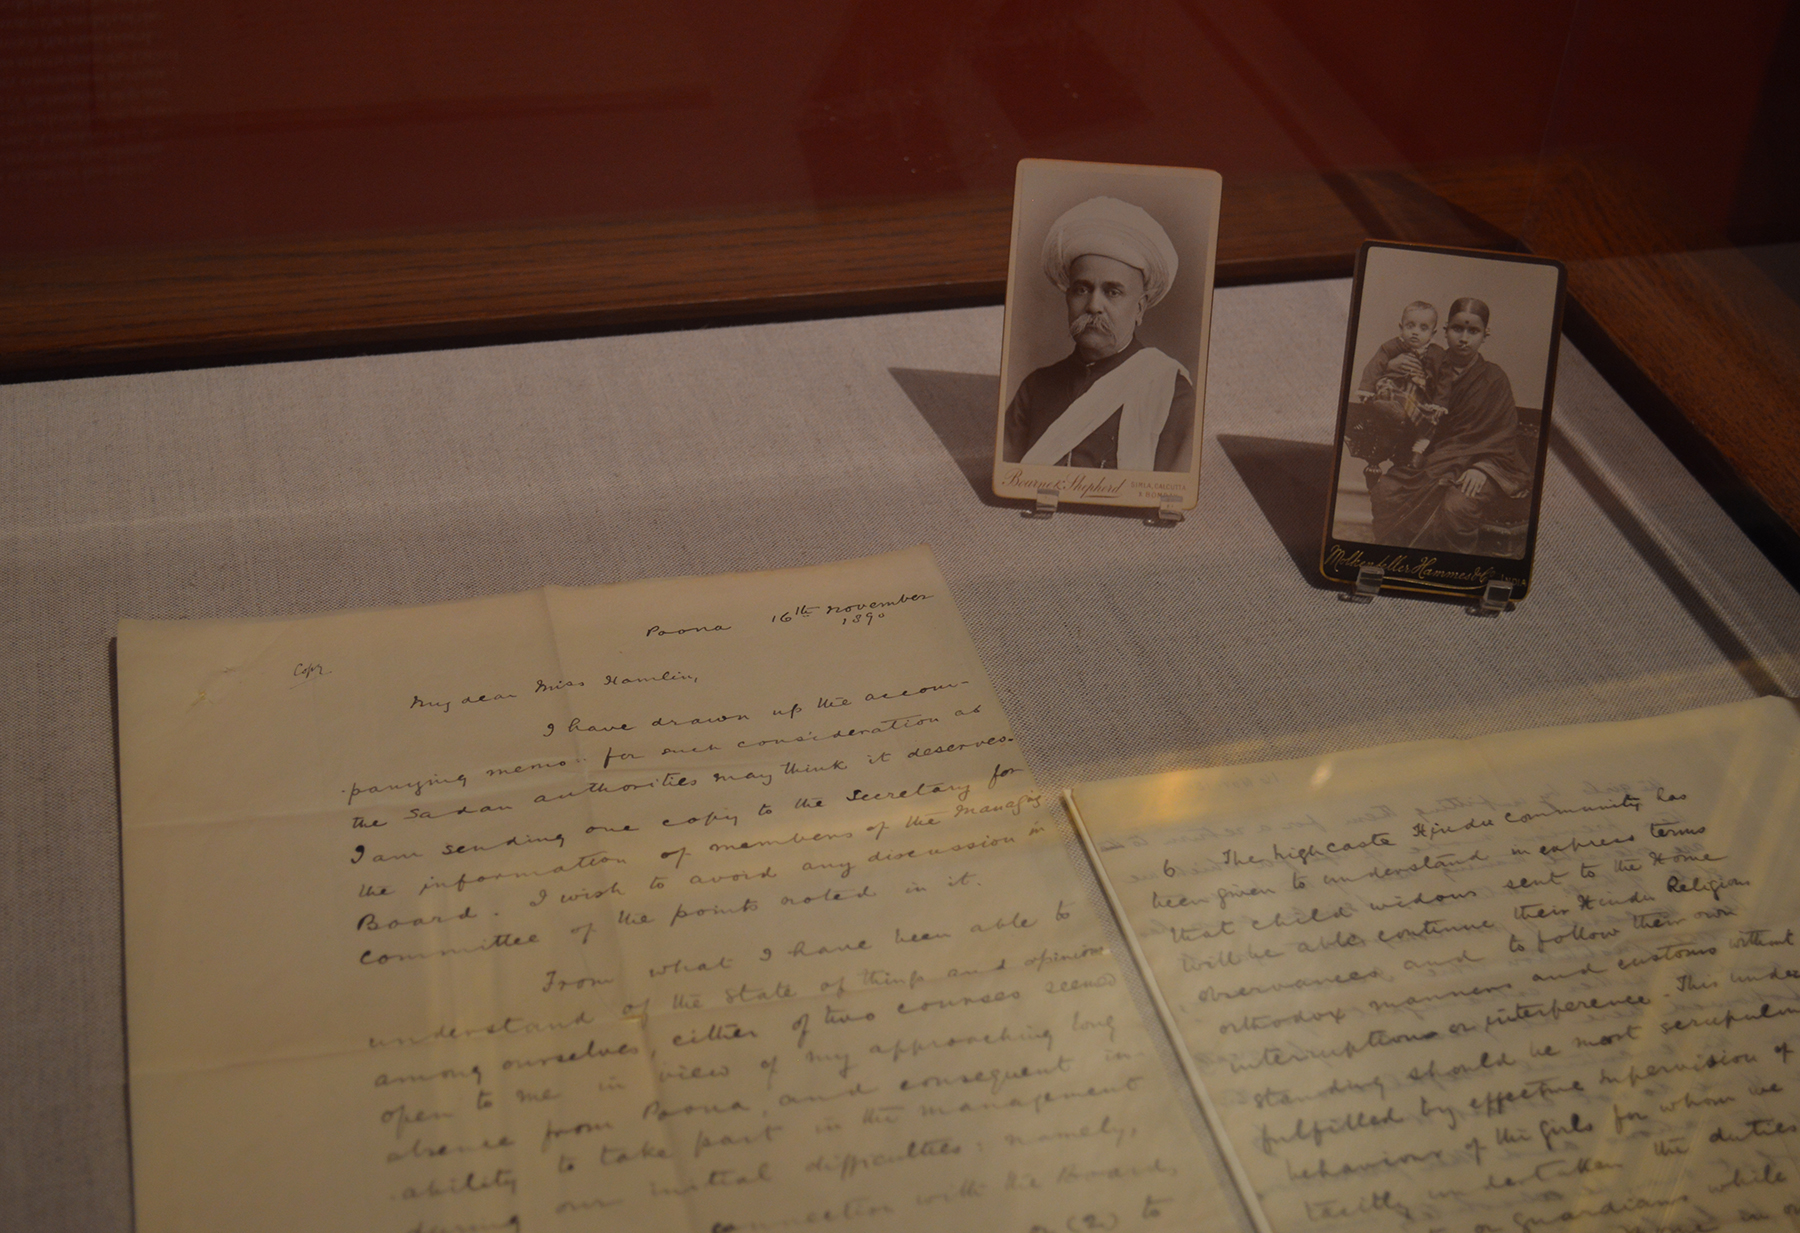 Bourne & Shepherd SIMLA, CALCUTTA
& BOMBAY
INDIA
Poona 16th November
1890
Copy.
My dear Miss Hamlin,
I have drawn up the accom-
panying memo. for such consideration as
the Sadan authorities may think it deserves.
I am sending one copy to the Secretary for
the information of members of the Managing
Board. I wish to avoid any discussion in
committee of the points noted in it.
From what I have been able to
understand of the state of things and opinions
among ourselves, either of two courses seemed
open to me in view of my approaching long
absence from Poona, and consequent in-
ability to take part in the management
during our initial difficulties; namely,
connection with the Boards
or (2) to
6 The high caste Hindu community has
been given to understand in express terms
that child widows sent to the Home
will be able continue their Hindu Religious
observances and to follow their own
orthodox manners and customs without
interruption or interference. This under
standing should be most scrupulou
fulfilled by effective supervision of
behaviour of the girls for whom we
tacitly undertaken the duties
or guardians while